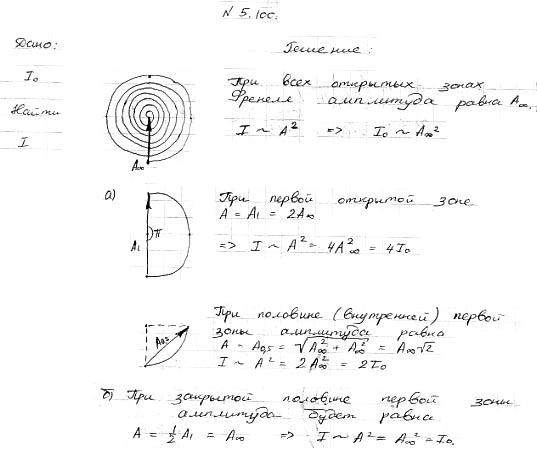 N 5.100.
Дано:
Решение:
I₀
Найти
I
При всех открытых зонах
Френеля амплитуда равна A∞.
I ~ A² => I₀ ~ A∞²
A∞
а)
При первой открытой зоне
A = A₁ = 2A∞
A₁
π
=> I ~ A² = 4A²∞ = 4I₀
При половине (внутренней) первой
зоны амплитуда равна
A = A₀,₅ = √A∞² + A∞² = A∞√2
A₀,₅
I ~ A² = 2A∞² = 2I₀
б) При закрытой половине первой зоны
амплитуда будет равна
A = ½ A₁ = A∞ => I ~ A² = A∞² = I₀.